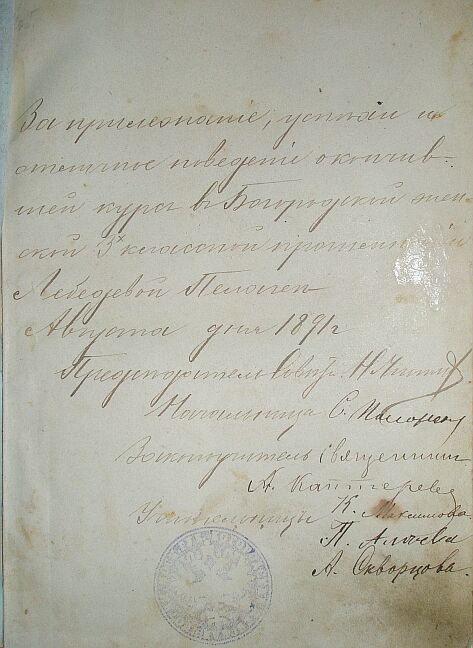 За прилежаніе, успѣхи и
отличное поведеніе окончив-
шей курсъ въ Богородской жен-
ской 3х классной прогимназіи
Лебедевой Пелагеи
Августа дня 1891 г
Предсѣдатель Совѣта Н.
Начальница С.
Законоучитель священникъ
А. Каптеревъ
Учительницы К. Максимова
П.
А. Скворцова.